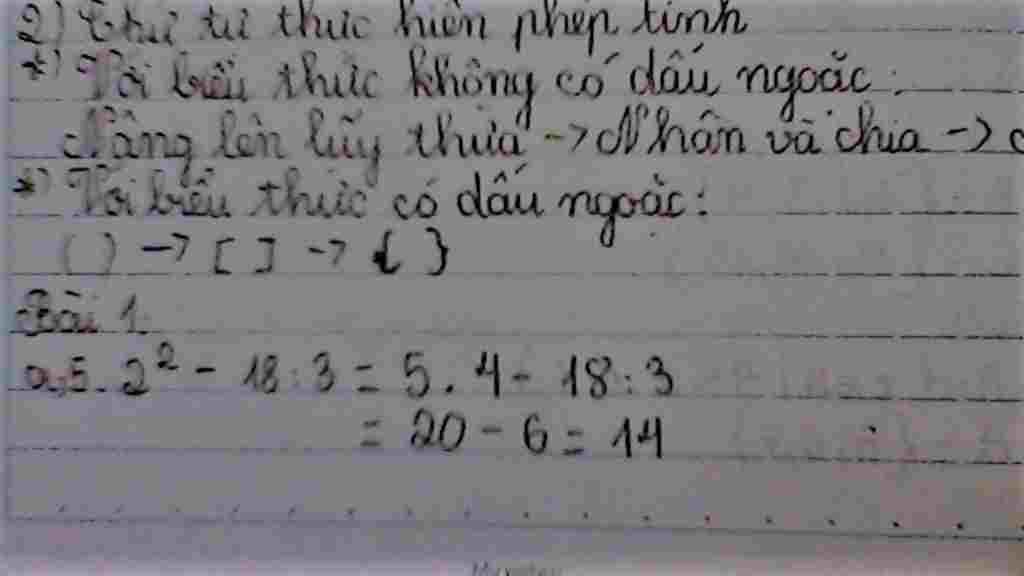 2) Thứ tự thực hiện phép tính
*) Với biểu thức không có dấu ngoặc:
Nâng lên lũy thừa -> Nhân và chia ->
*) Với biểu thức có dấu ngoặc:
( ) -> [ ] -> { }
Bài 1.
a, 5. 2² - 18 : 3 = 5 . 4 - 18 : 3
= 20 - 6 = 14